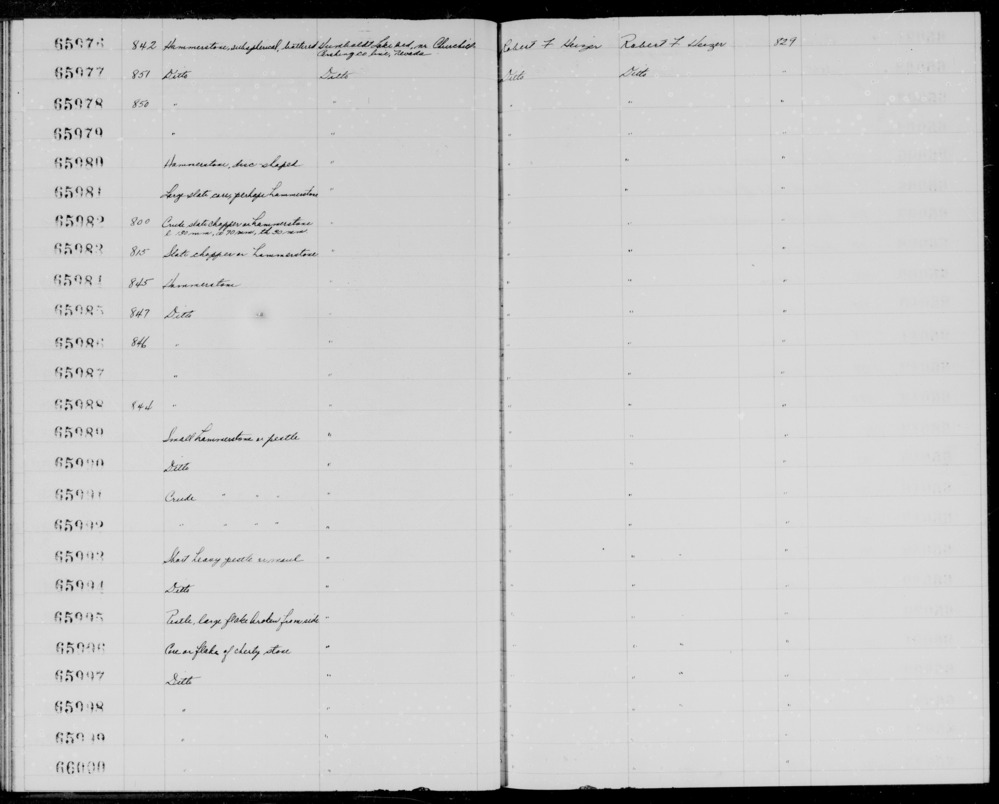 65976 842 Hammerstone, subspherical, battered Humboldt Lake bed, nr Churchill Robert F Heizer Robert F Heizer 829
Pershing co. line, Nevada
65977 851 Ditto Ditto Ditto Ditto "
65978 850 " " " " "
65979 " " " " "
65980 Hammerstone, disc shaped " " " "
65981 Large slate core, perhaps hammerstone " " " "
65982 800 Crude slate chopper or hammerstone " " " "
65983 815 Slate chopper or hammerstone " " " "
65984 845 Hammerstone " " " "
65985 847 Ditto " " " "
65986 846 " " " " "
65987 " " " " "
65988 844 " " " " "
65989 Small hammerstone or pestle " " " "
65990 Ditto " " " "
65991 Crude " " " " " " "
65992 " " " " " " " "
65993 Short heavy pestle or maul " " " " "
65994 Ditto " " " "
65995 Pestle, large flake broken from side " " " "
65996 Core or flake of cherty stone " " " " "
65997 Ditto " " " " "
65998 " " " " "
65999 " " " " "
66000 " " " " "